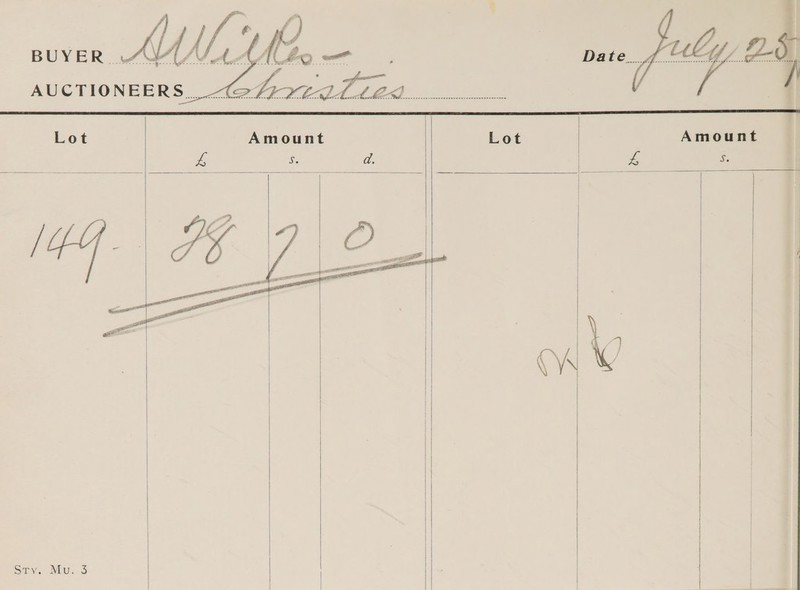 BUYER AWilkes - Date July 25,
AUCTIONEERS Christies
Lot Amount Lot Amount
£ s. d. £ s.
149 - 28 7 0
Sty. Mu. 3